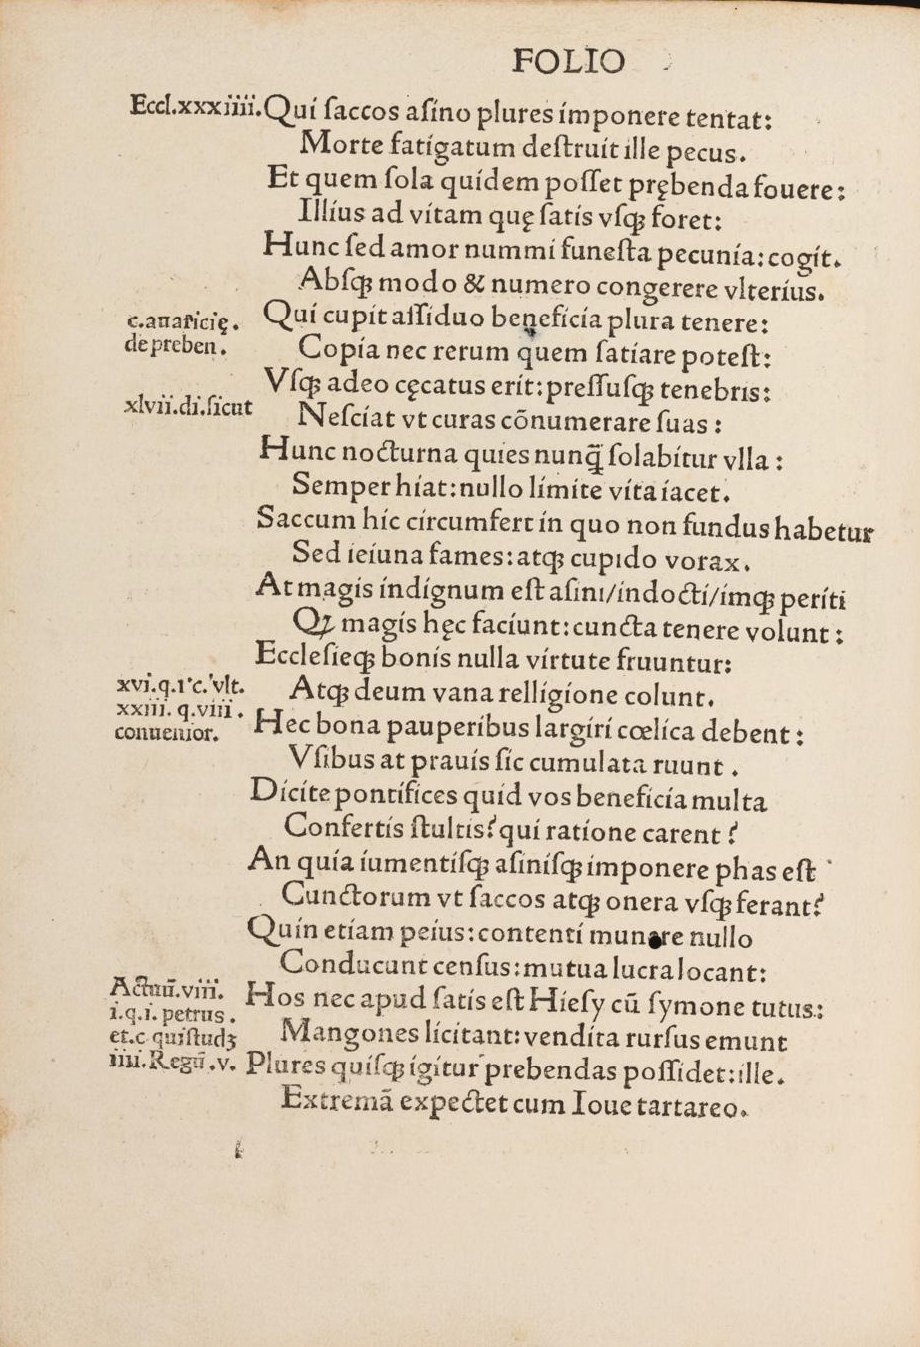 FOLIO
Eccl.xxxiiii. Qui ſaccos aſino plures imponere tentat:
Morte fatigatum deſtruit ille pecus.
Et quem ſola quidem poſſet prębenda fouere:
Illius ad vitam quę ſatis vſqꝫ foret:
Hunc ſed amor nummi funeſta pecunia: cogit.
Abſqꝫ modo & numero congerere vlterius.
c.auaricię. Qui cupit aſſiduo beneficia plura tenere:
de preben. Copia nec rerum quem ſatiare poteſt:
Vſqꝫ adeo cęcatus erit: preſſuſqꝫ tenebris:
xlvii.di.ſicut Neſciat vt curas cōnumerare ſuas:
Hunc nocturna quies nunq̄ ſolabitur vlla:
Semper hiat: nullo limite vita iacet.
Saccum hic circumfert in quo non fundus habetur
Sed ieiuna fames: atqꝫ cupido vorax.
At magis indignum eſt aſini/indocti/imqꝫ periti
Qꝫ magis hęc faciunt: cuncta tenere volunt:
Eccleſieqꝫ bonis nulla virtute fruuntur:
xvi.q.1 c. vlt. Atqꝫ deum vana relligione colunt.
xxiii. q.viii.
conuenior. Hec bona pauperibus largiri cœlica debent:
Vſibus at prauis ſic cumulata ruunt.
Dicite pontifices quid vos beneficia multa
Confertis ſtultis? qui ratione carent?
An quia iumentiſqꝫ aſiniſqꝫ imponere phas eſt
Cunctorum vt ſaccos atqꝫ onera vſqꝫ ferant?
Quin etiam peius: contenti munere nullo
Conducunt cenſus: mutua lucra locant:
Actuū.viii. Hos nec apud ſatis eſt Hieſy cū ſymone tutus:
i.q.i. petrus.
et.c quiſtudꝫ Mangones licitant: vendita rurſus emunt
iiii.Regū.v. Plures quiſqꝫ igitur prebendas poſſidet: ille.
Extremā expectet cum Ioue tartareo.